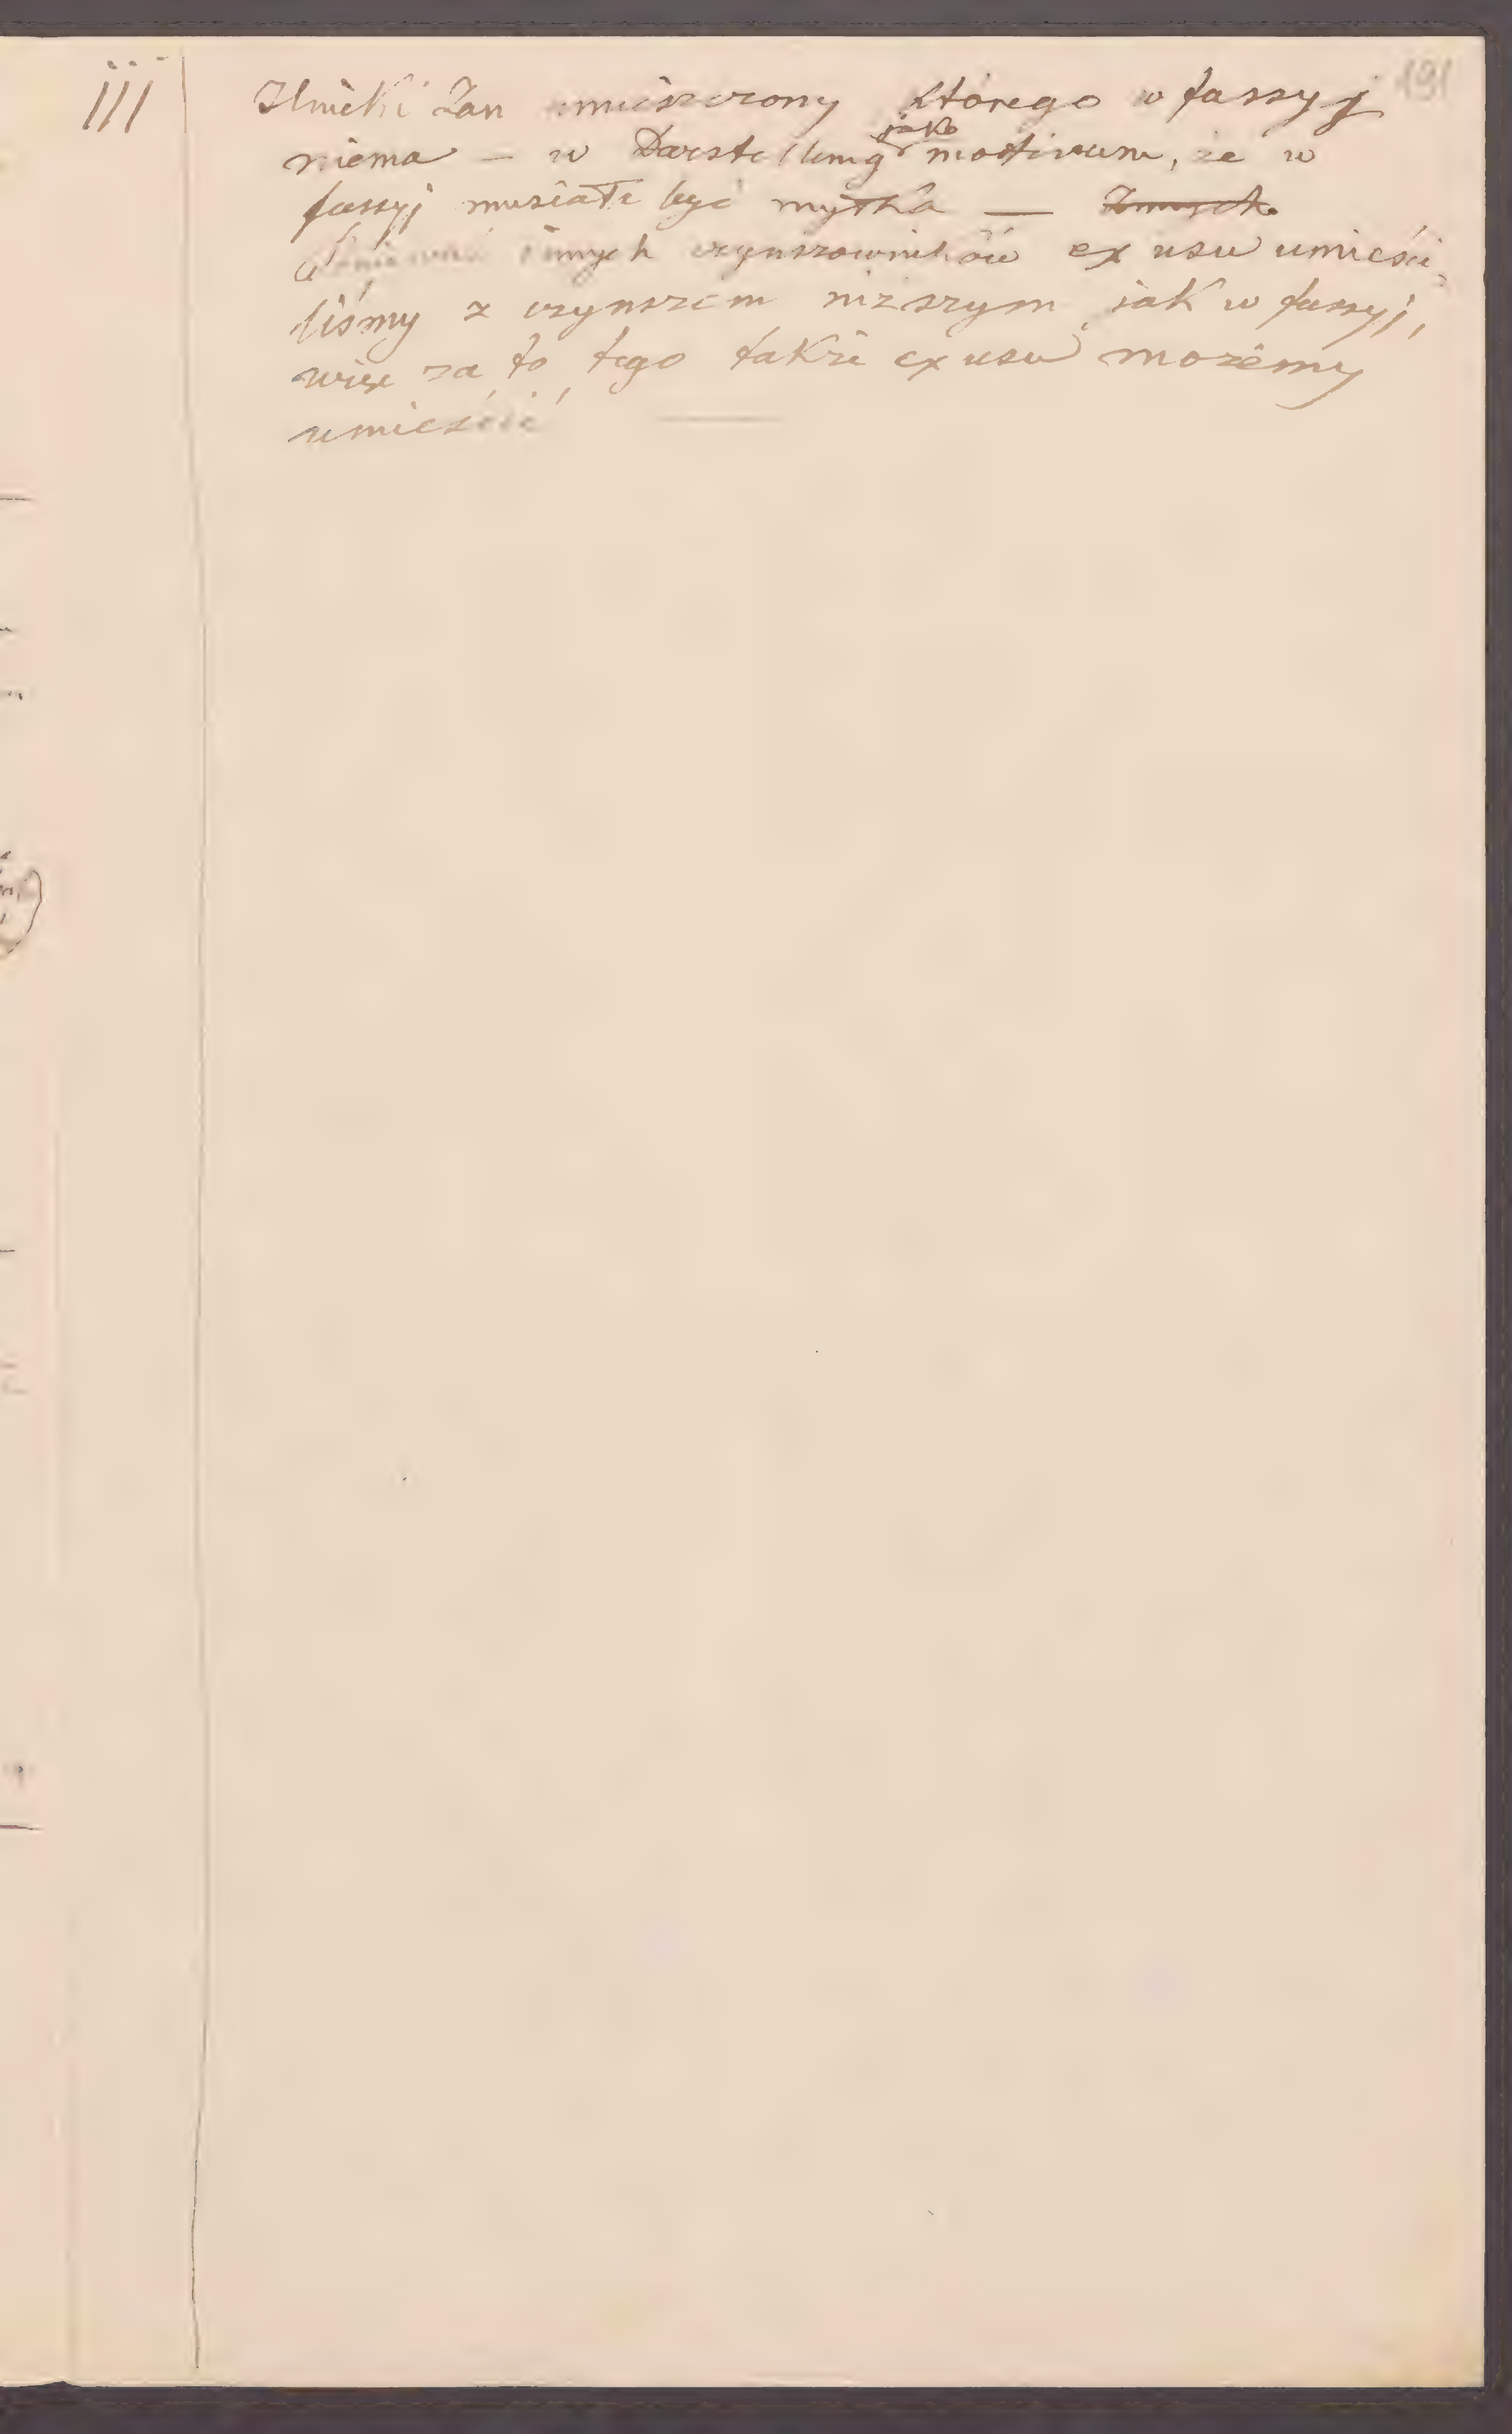 191
III Ilnicki Jan umieszczony którego w fassyj
niema — w Darstellung jako motivum, że w
fassyj musiała być myłka — Innych
innych czynszowników ex usu umieści-
liśmy z czynszem niższym jak w fassyj,
więc za to tego także ex usu możemy
umieścić